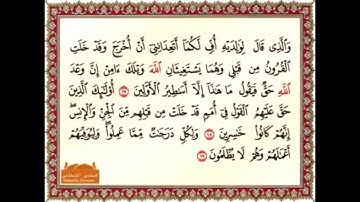 وَالَّذِي قَالَ لِوَالِدَيْهِ أُفٍّ لَكُمَا أَتَعِدَانِنِي أَنْ أُخْرَجَ وَقَدْ خَلَتِ
الْقُرُونُ مِنْ قَبْلِي وَهُمَا يَسْتَغِيثَانِ اللَّهَ وَيْلَكَ ءَامِنْ إِنَّ وَعْدَ
اللَّهِ حَقٌّ فَيَقُولُ مَا هَٰذَا إِلَّا أَسَاطِيرُ الْأَوَّلِينَ ﴿١٧﴾ أُولَٰئِكَ الَّذِينَ
حَقَّ عَلَيْهِمُ الْقَوْلُ فِي أُمَمٍ قَدْ خَلَتْ مِنْ قَبْلِهِمْ مِنَ الْجِنِّ وَالْإِنْسِ
إِنَّهُمْ كَانُوا خَاسِرِينَ ﴿١٨﴾ وَلِكُلٍّ دَرَجَاتٌ مِمَّا عَمِلُوا وَلِيُوَفِّيَهُمْ
أَعْمَالَهُمْ وَهُمْ لَا يُظْلَمُونَ ﴿١٩﴾